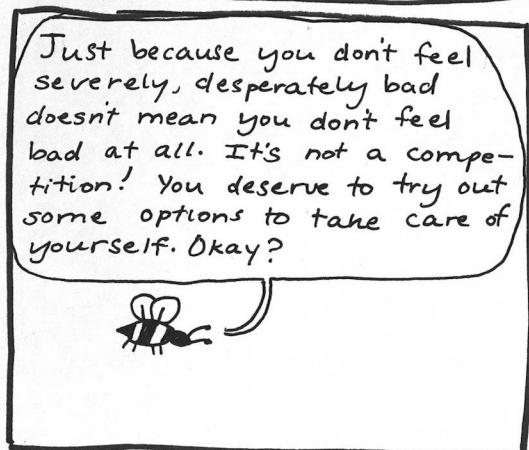 Just because you don't feel
severely, desperately bad
doesn't mean you don't feel
bad at all. It's not a compe-
tition! You deserve to try out
some options to take care of
yourself. Okay?